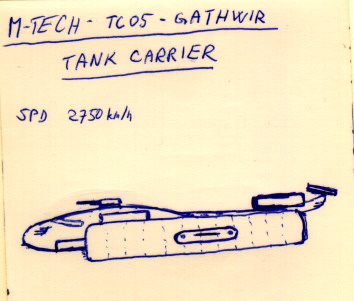 M-TECH - TC05 - GATHWIR
TANK CARRIER
SPD 2750 km/h